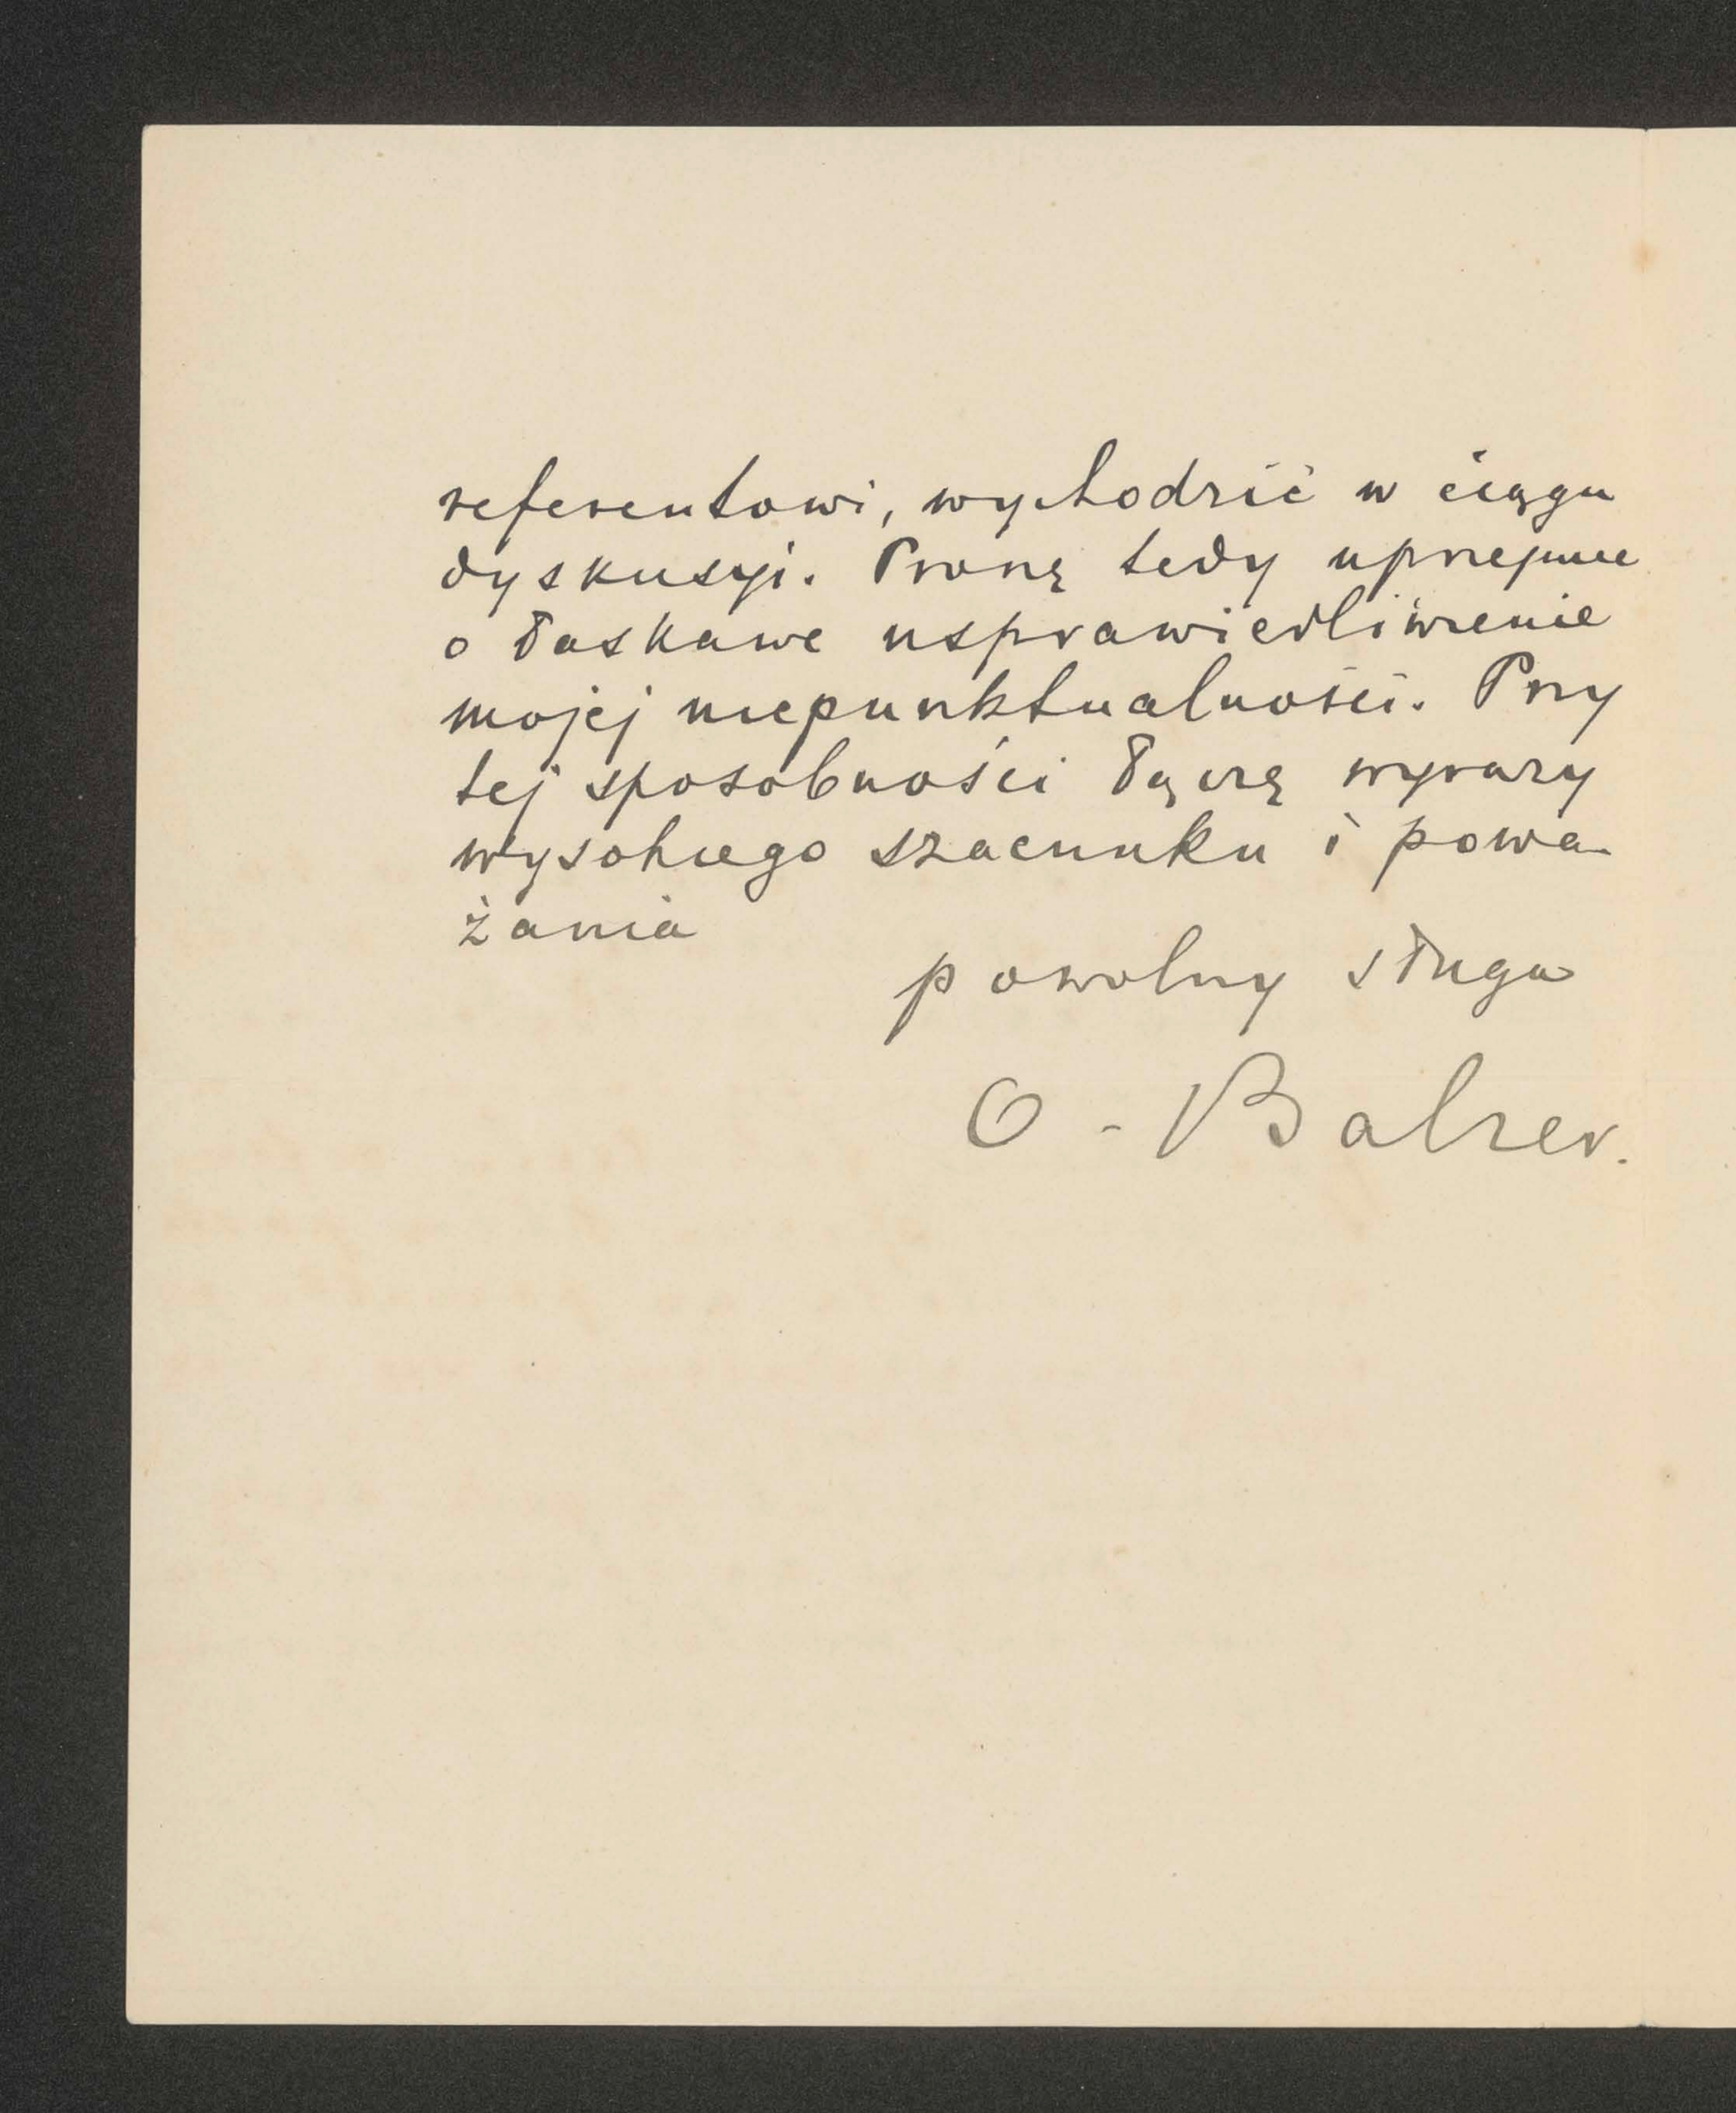 referentowi, wychodzić w ciągu
dyskusyi. Proszę tedy uprzejmie
o łaskawe usprawiedliwienie
mojej niepunktualności. Przy
tej sposobności łączę wyrazy
wysokiego szacunku i powa-
żania
powolny sługa
O. Balzer.